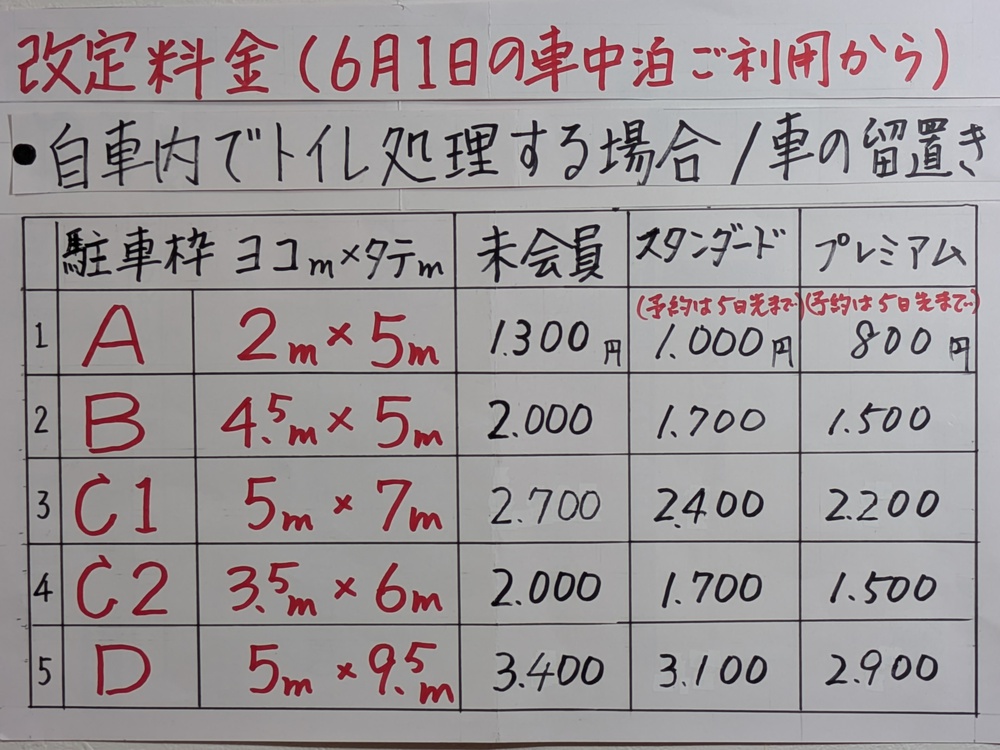 改定料金(6月1日の車中泊ご利用から)
•自車内でトイレ処理する場合/車の留置き
駐車枠 ヨコm×タテm 未会員 スタンダード プレミアム
(予約は5日先まで) (予約は5日先まで)
1 A 2m×5m 1.300円 1.000円 800円
2 B 4.5m×5m 2.000 1.700 1.500
3 C1 5m×7m 2.700 2.400 2.200
4 C2 3.5m×6m 2.000 1.700 1.500
5 D 5m×9.5m 3.400 3.100 2.900